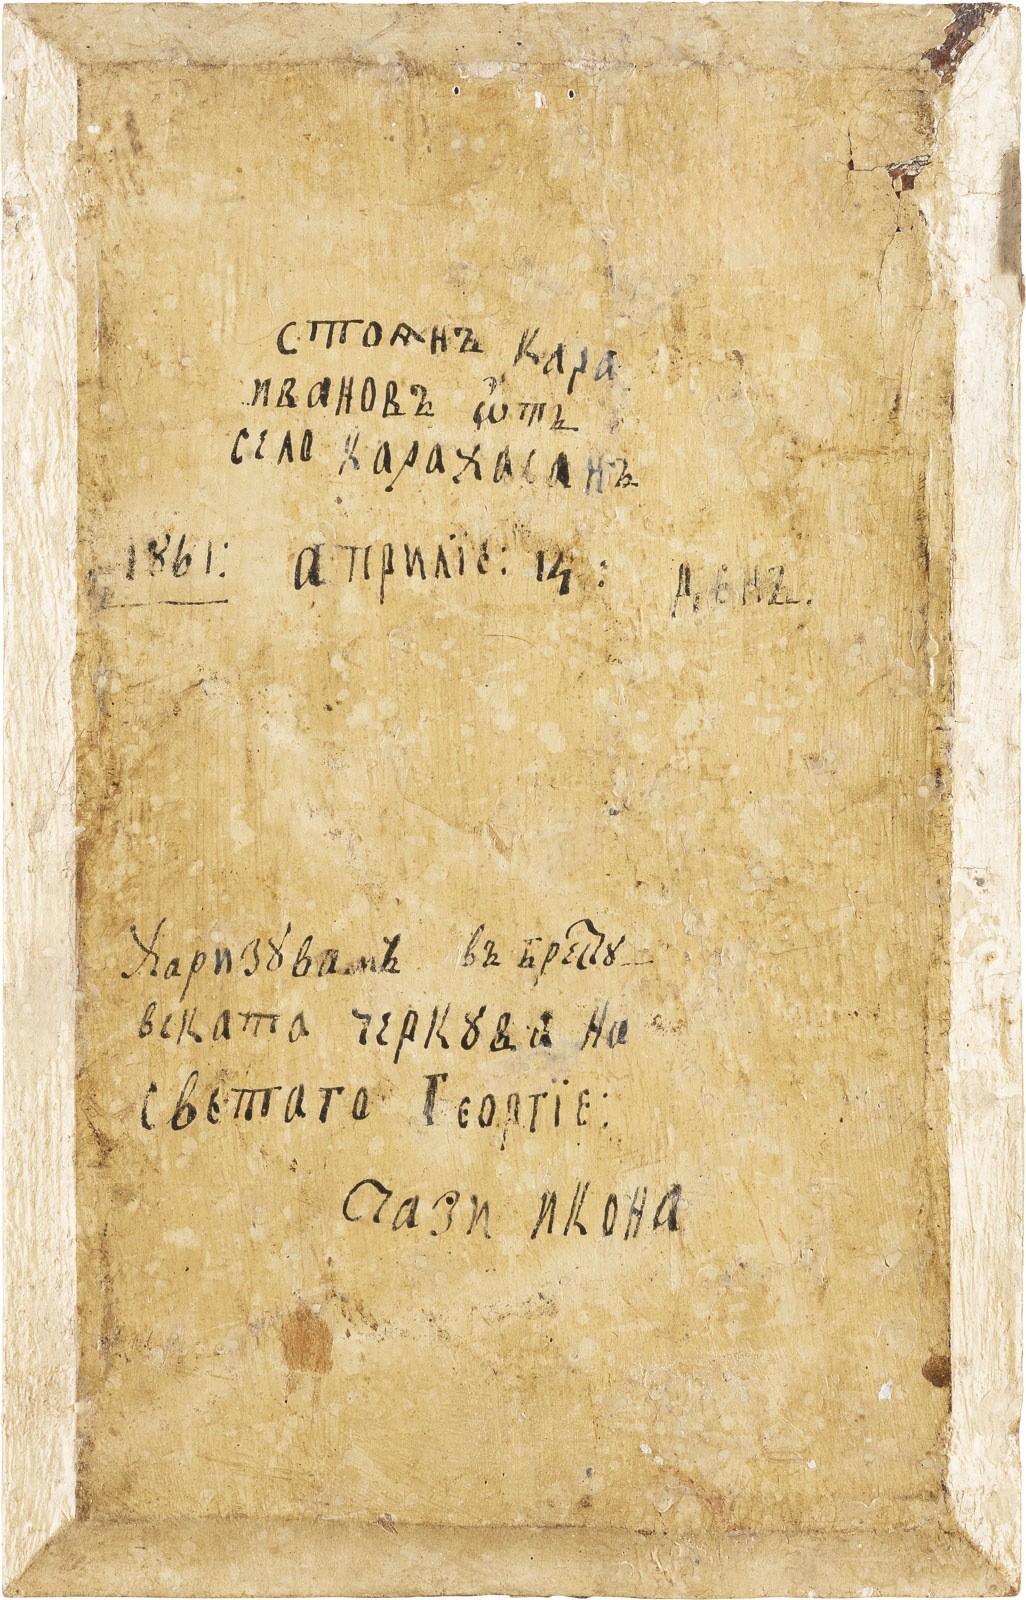 стоянъ Кара
ивановъ ѿтъ
село Карахасанъ
1861: априлїе: 14: денъ.
Харизꙋвамъ въ
вската черкꙋва на
светаго Георгїе:
Тази икона